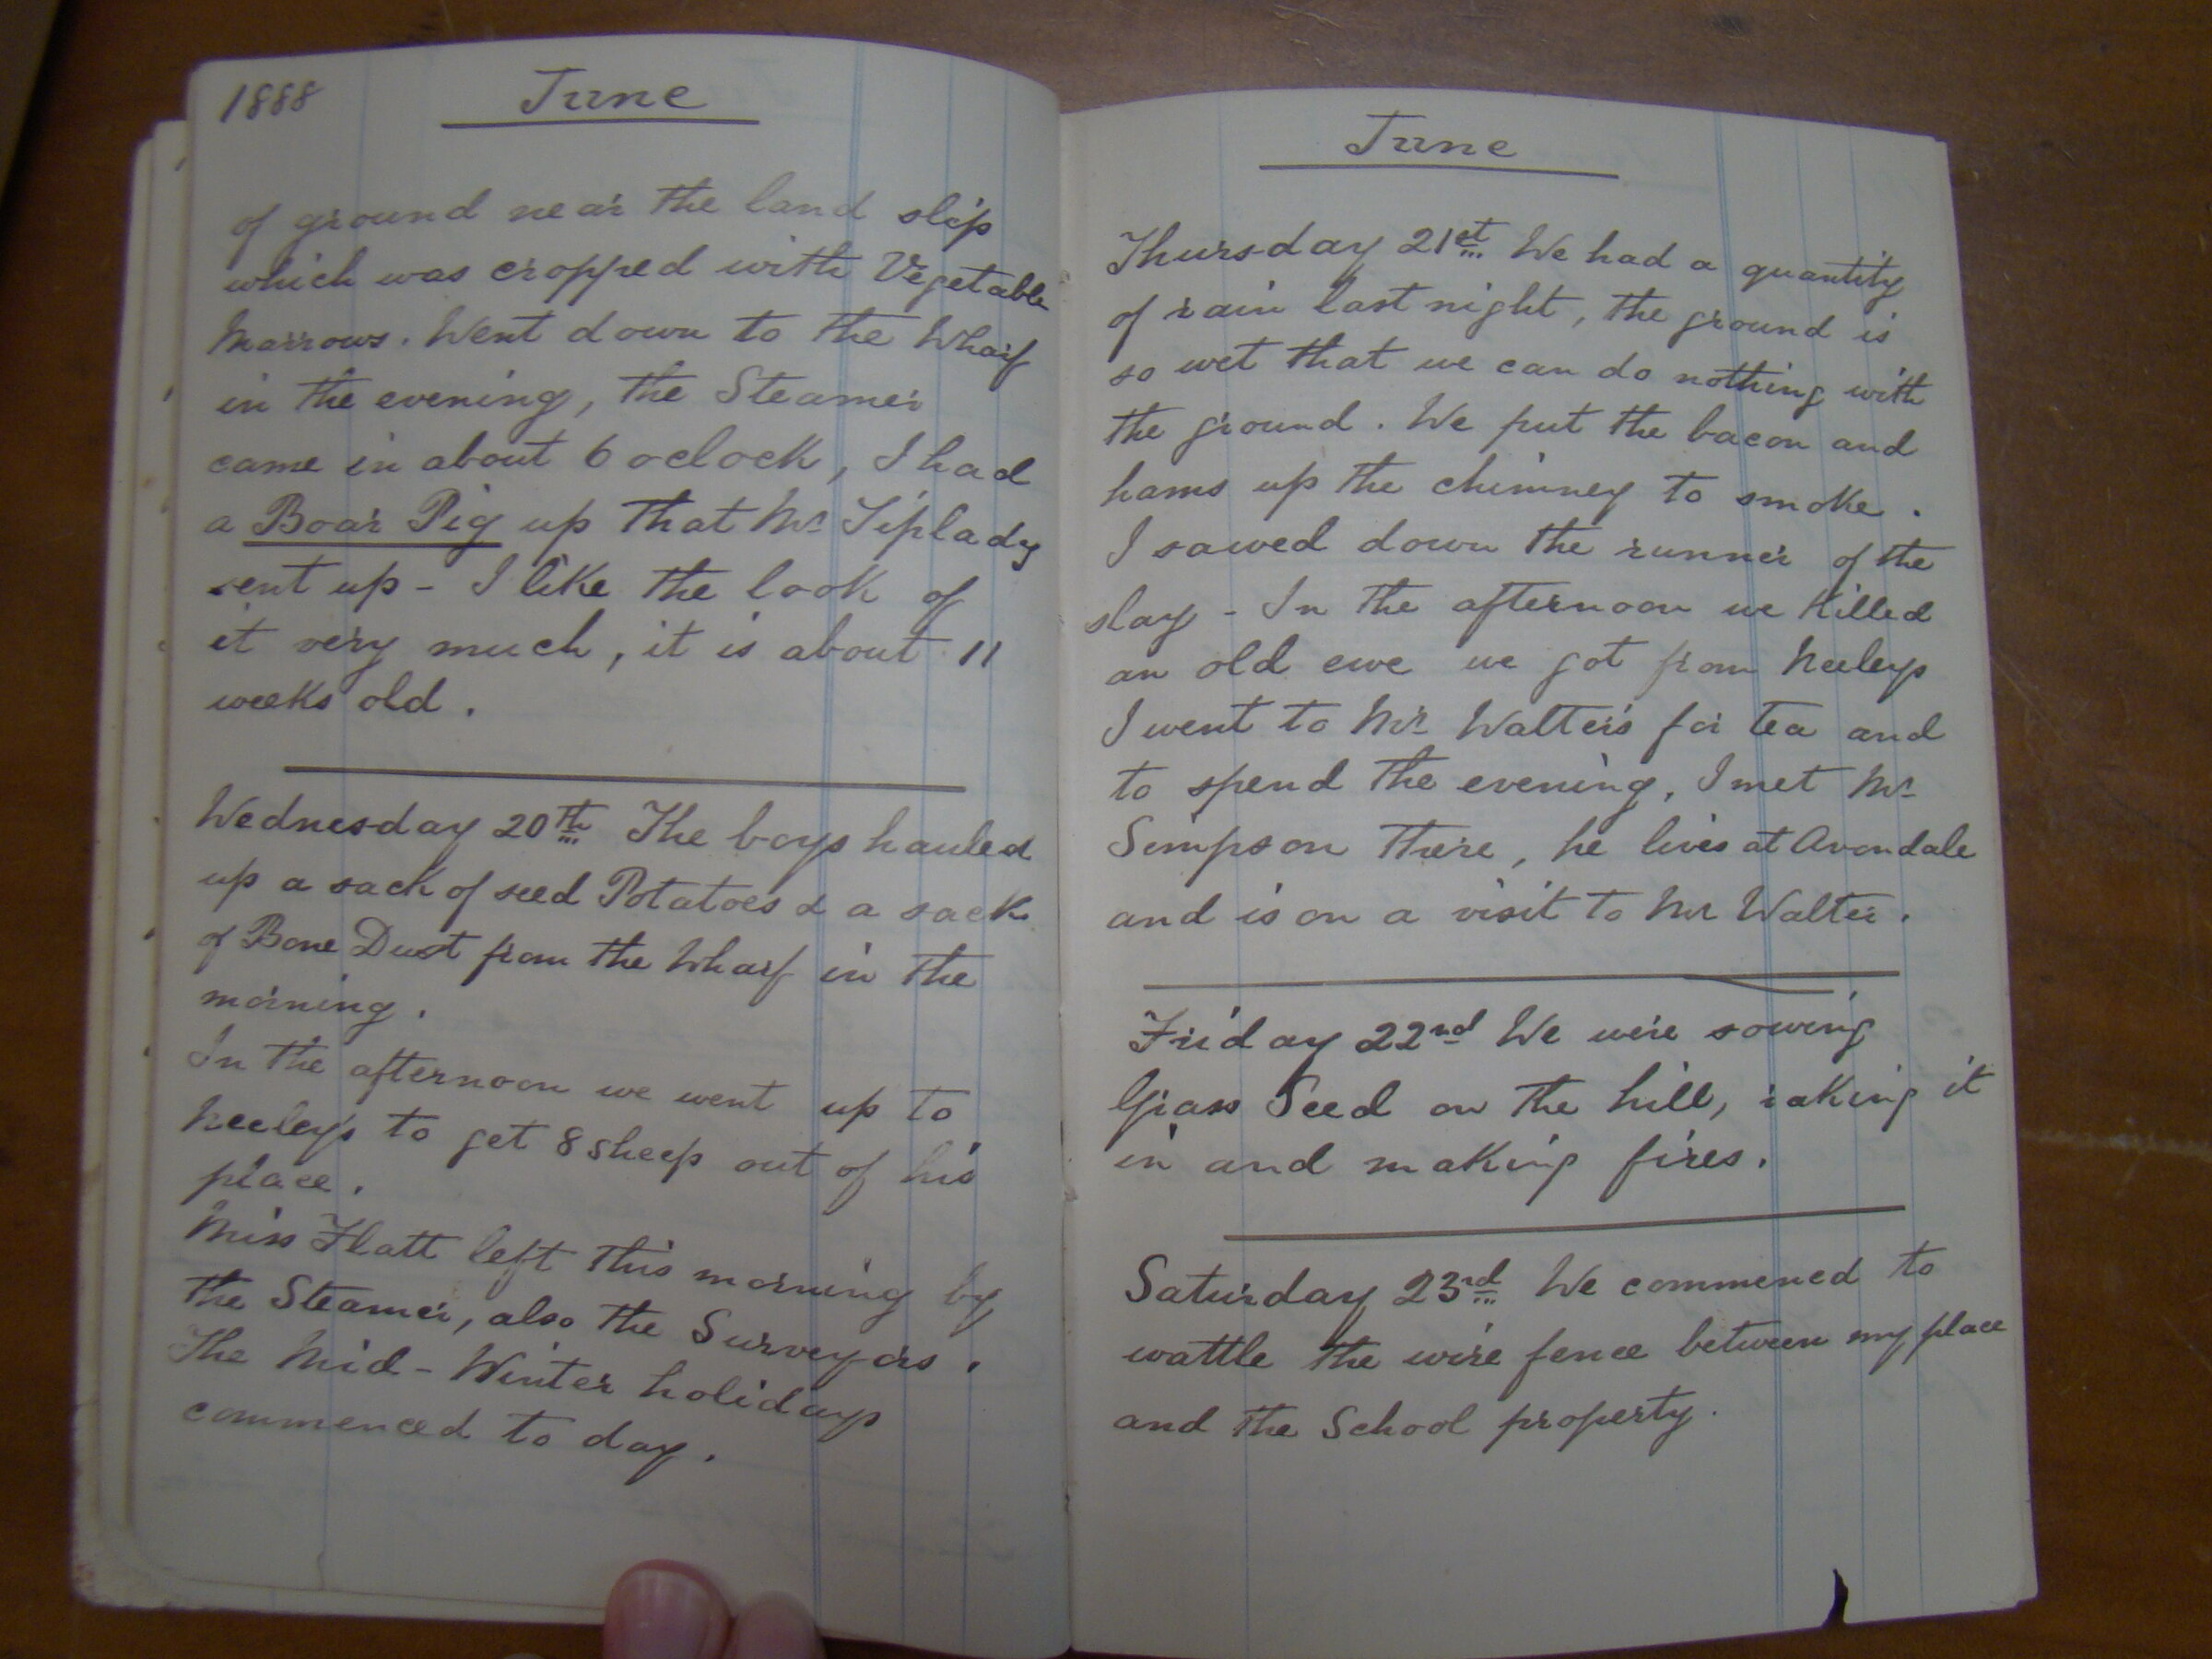 1888 June
of ground near the land slip
which was cropped with Vegetable
Marrows. Went down to the Wharf
in the evening, the Steamer
came in about 6 oclock, I had
a Boar Pig up that Mr Tiplady
sent up - I like the look of
it very much, it is about 11
weeks old.
Wednesday 20th The boys hauled
up a sack of seed Potatoes & a sack
of Bone Dust from the Wharf in the
morning.
In the afternoon we went up to
Neeleys to get 8 sheep out of his
place.
Miss Flatt left this morning by
the Steamer, also the Surveyors.
The Mid-Winter holidays
commenced to day.
June
Thursday 21st We had a quantity
of rain last night, the ground is
so wet that we can do nothing with
the ground. We put the bacon and
hams up the chimney to smoke.
I sawed down the runner of the
slay - In the afternoon we killed
an old ewe we got from Neeleys
I went to Mr Walters for tea and
to spend the evening, I met Mr
Simpson there, he lives at Avondale
and is on a visit to Mr Walter.
Friday 22nd We were sowing
Grass Seed on the hill, raking it
in and making fires.
Saturday 23rd We commened to
wattle the wire fence between my place
and the School property.